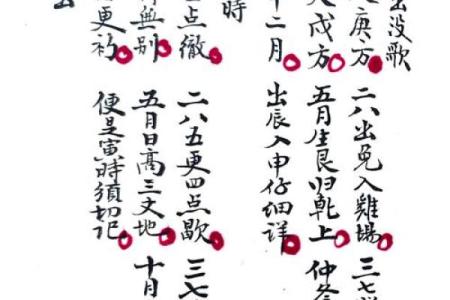 出没歌
庚方 二八出兔入雞場 三七
戌方 五月生艮归乾上 仲冬
十二月 出辰入申仔细詳
時
点徹 二八五更四点歇 三七
無别 五月日高三丈地 十月
更初 便是寅時須切记